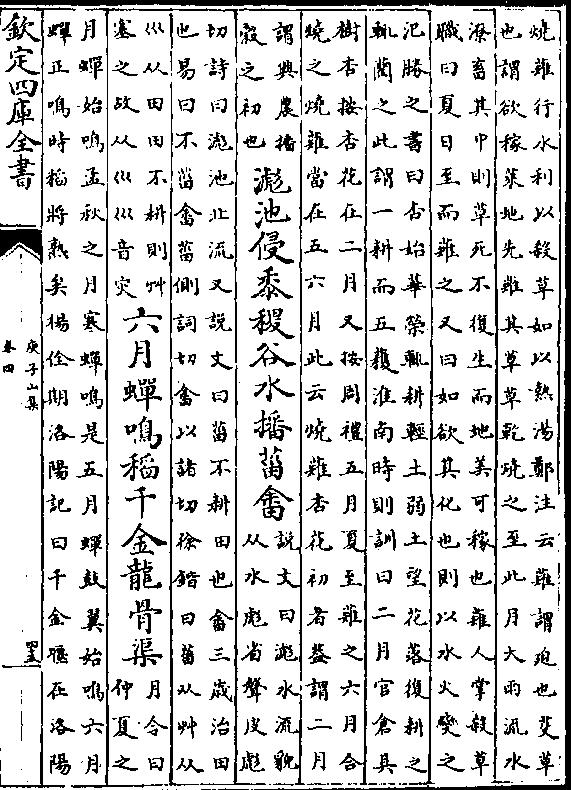 燒雜行水利以殺草如以熱湯鄭注云薙謂迫也芟草
也謂欲稼萊地先薙其草草乾燒之至此月大雨流水
潦畜其中則草死不復生而地美可稼也薙人掌殺草
職曰夏日至而薙之又曰如欲其化也則以水火變之
氾勝之書曰杏始華榮輒耕輕土弱土望花落復耕之
輒藺之此謂一耕而五穫淮南時則訓曰二月官倉其
樹杏按杏花在二月又按周禮五月夏至薙之六月合
燒之燒薙當在五六月此云燒薙杏花初者蓋謂二月
謂興農播
穀之初也
滮池侵黍稷谷水播菑畬
說文曰滮水流貌
从水彪省聲皮彪
切詩曰滮池北流又說文曰菑不耕田也畬三歲治田
也易曰不菑畬菑側詞切畬以諸切徐鍇曰菑从艸从
巛从田田不耕則艸
塞之故从巛巛音灾
六月蟬鳴稻千金龍骨渠
月令曰
仲夏之
月蟬始鳴孟秋之月寒蟬鳴是五月蟬鼓翼始鳴六月
蟬正鳴時稻將熟矣楊佺期洛陽記曰千金堰在洛陽
欽定四庫全書
庾子山集
卷四